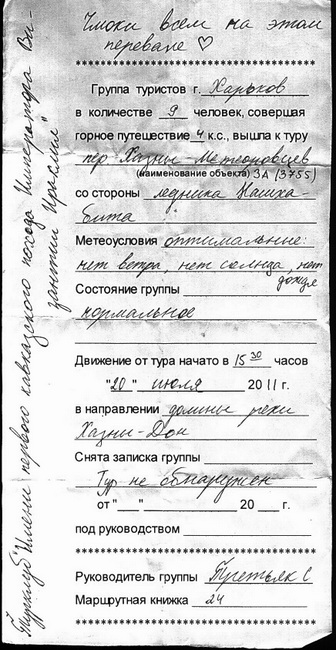 Чмоки всем на этом
перевале ♡
Группа туристов г. Харьков
в количестве 9 человек, совершая
горное путешествие 4 к.с., вышла к туру
пер Хазны - Метеоновцев
(наименование объекта) 3А (3755)
со стороны ледника Нашха-
бита
Метеоусловия оптимальные:
нет ветра, нет солнца, нет
дождя
Состояние группы
нормальное
Движение от тура начато в 15 30 часов
"20" июля 2011 г.
в направлении долины реки
Хазны-Дон
Снята записка группы
Тур не обнаружен
от "__" ________ 20 __ г.
под руководством
Руководитель группы Третьяк С
Маршрутная книжка 24
Турклуб "Имени первого кавказского похода Императора Ви-
зантии Ираклия"